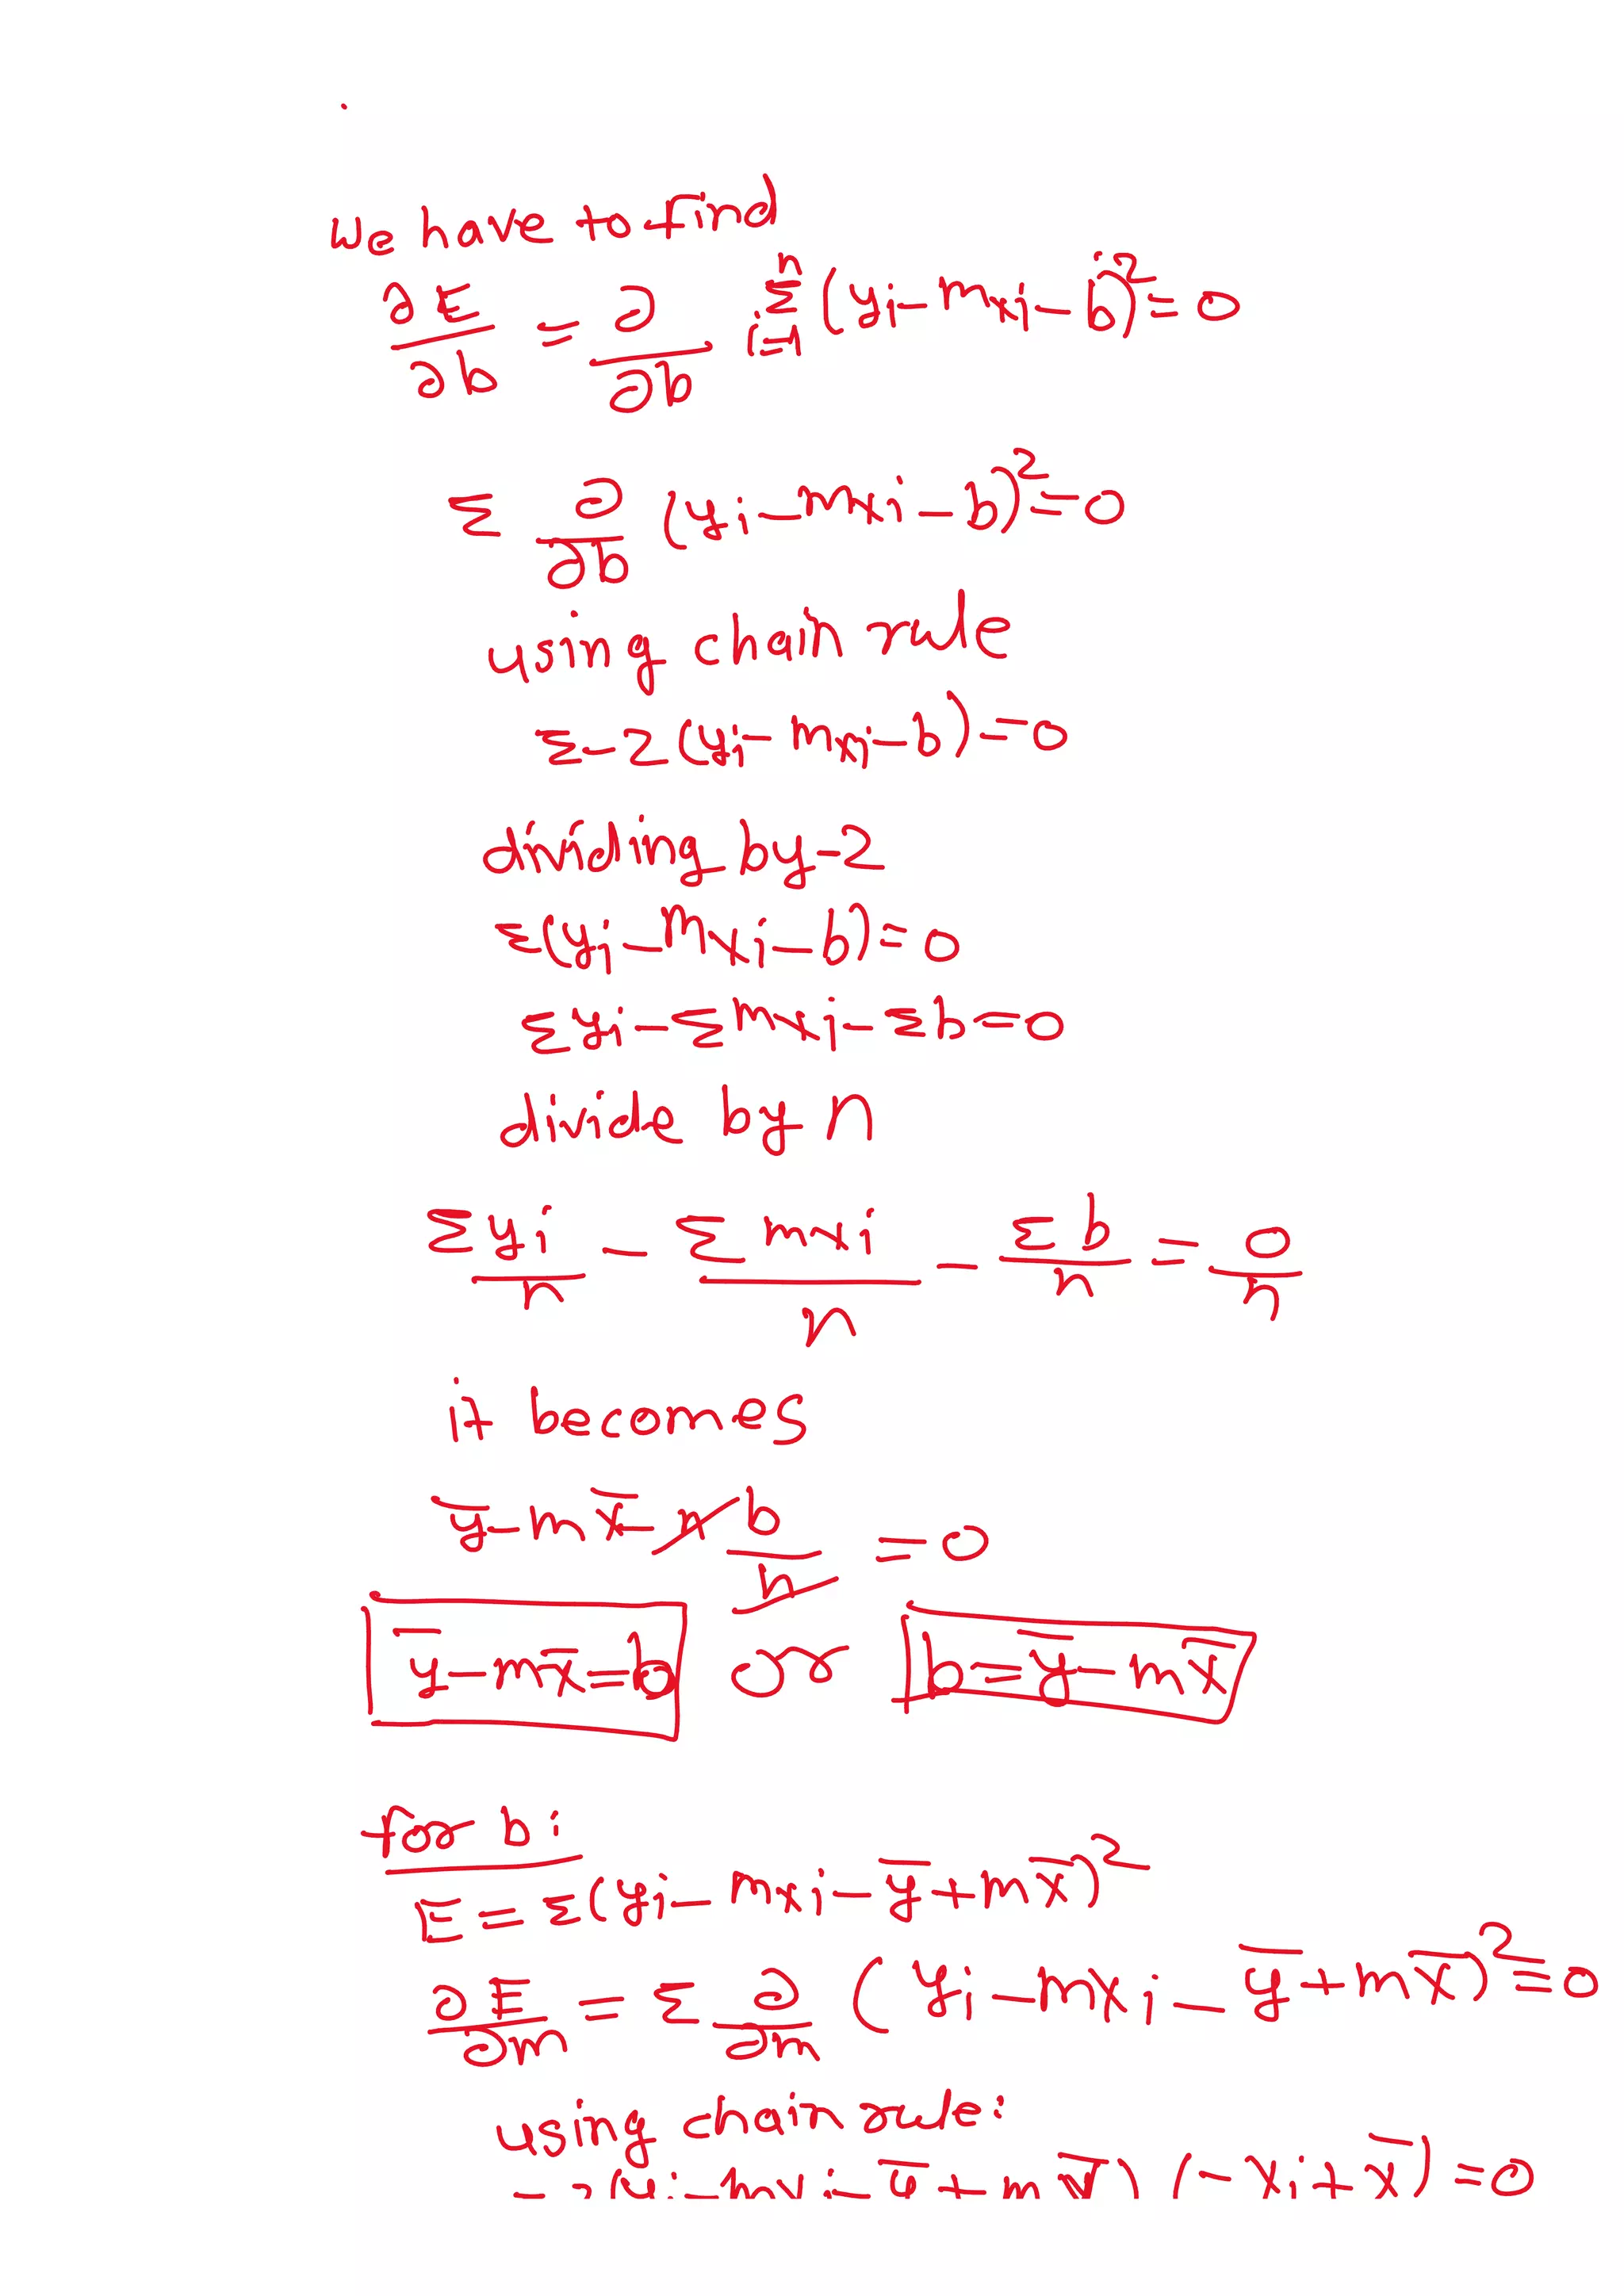 we have to find
∂E/∂b = ∂/∂b Σ(i=1 to n) (yi - mxi - b)² = 0
Σ ∂/∂b (yi - mxi - b)² = 0
using chain rule
Σ -2 (yi - mxi - b) = 0
dividing by -2
Σ(yi - mxi - b) = 0
Σyi - Σmxi - Σb = 0
divide by n
Σyi/n - Σmxi/n - Σb/n = 0/n
it becomes
y̅ - mx̅ - nb/n = 0
y̅ - mx̅ = b or b = y̅ - mx̅
for b:
E = Σ(yi - mxi - y̅ + mx̅)²
∂E/∂m = Σ ∂/∂m (yi - mxi - y̅ + mx̅)² = 0
using chain rule:
(yi - mxi - y̅ + mx̅) (-xi + x̅) = 0